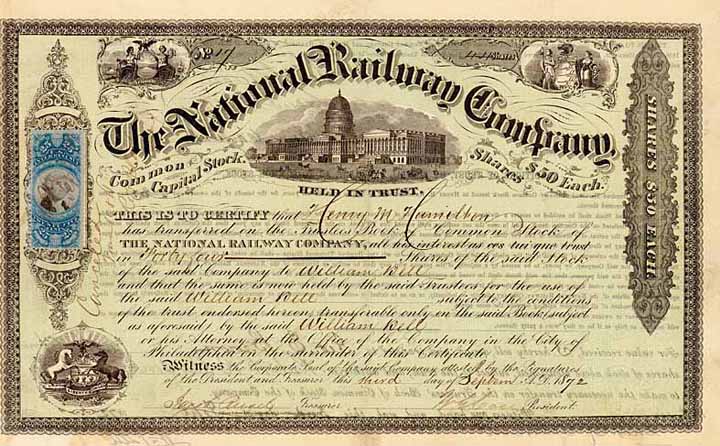 No. 17
44 Shares
The National Railway Company,
Common Capital Stock.
Shares $50 Each.
HELD IN TRUST,
SHARES $50 EACH
THIS IS TO CERTIFY that Henry M Hamilton
has transferred on the Trustees Book Common Stock of
THE NATIONAL RAILWAY COMPANY, all his interest as cestui que trust
in Forty four Shares of the said Stock
of the said Company to William Bell
and that the same is now held by the said Trustees for the use of
the said William Bell subject to the conditions
of the trust endorsed hereon, transferable only on the said Books (subject
as aforesaid) by the said William Bell
or his Attorney at the Office of the Company in the City of
Philadelphia on the surrender of this Certificate.
Witness the Corporate Seal of the said Company attested by the Signatures
of the President and Treasurer this third day of Septem A.D. 1872
Treasurer
President.